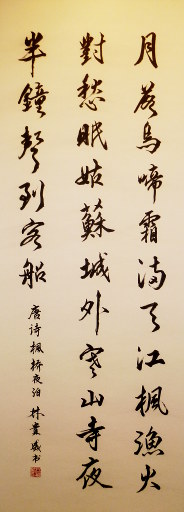 月落烏啼霜滿天江楓漁火
對愁眠姑蘇城外寒山寺夜
半鐘聲到客船
唐诗楓桥夜泊 林